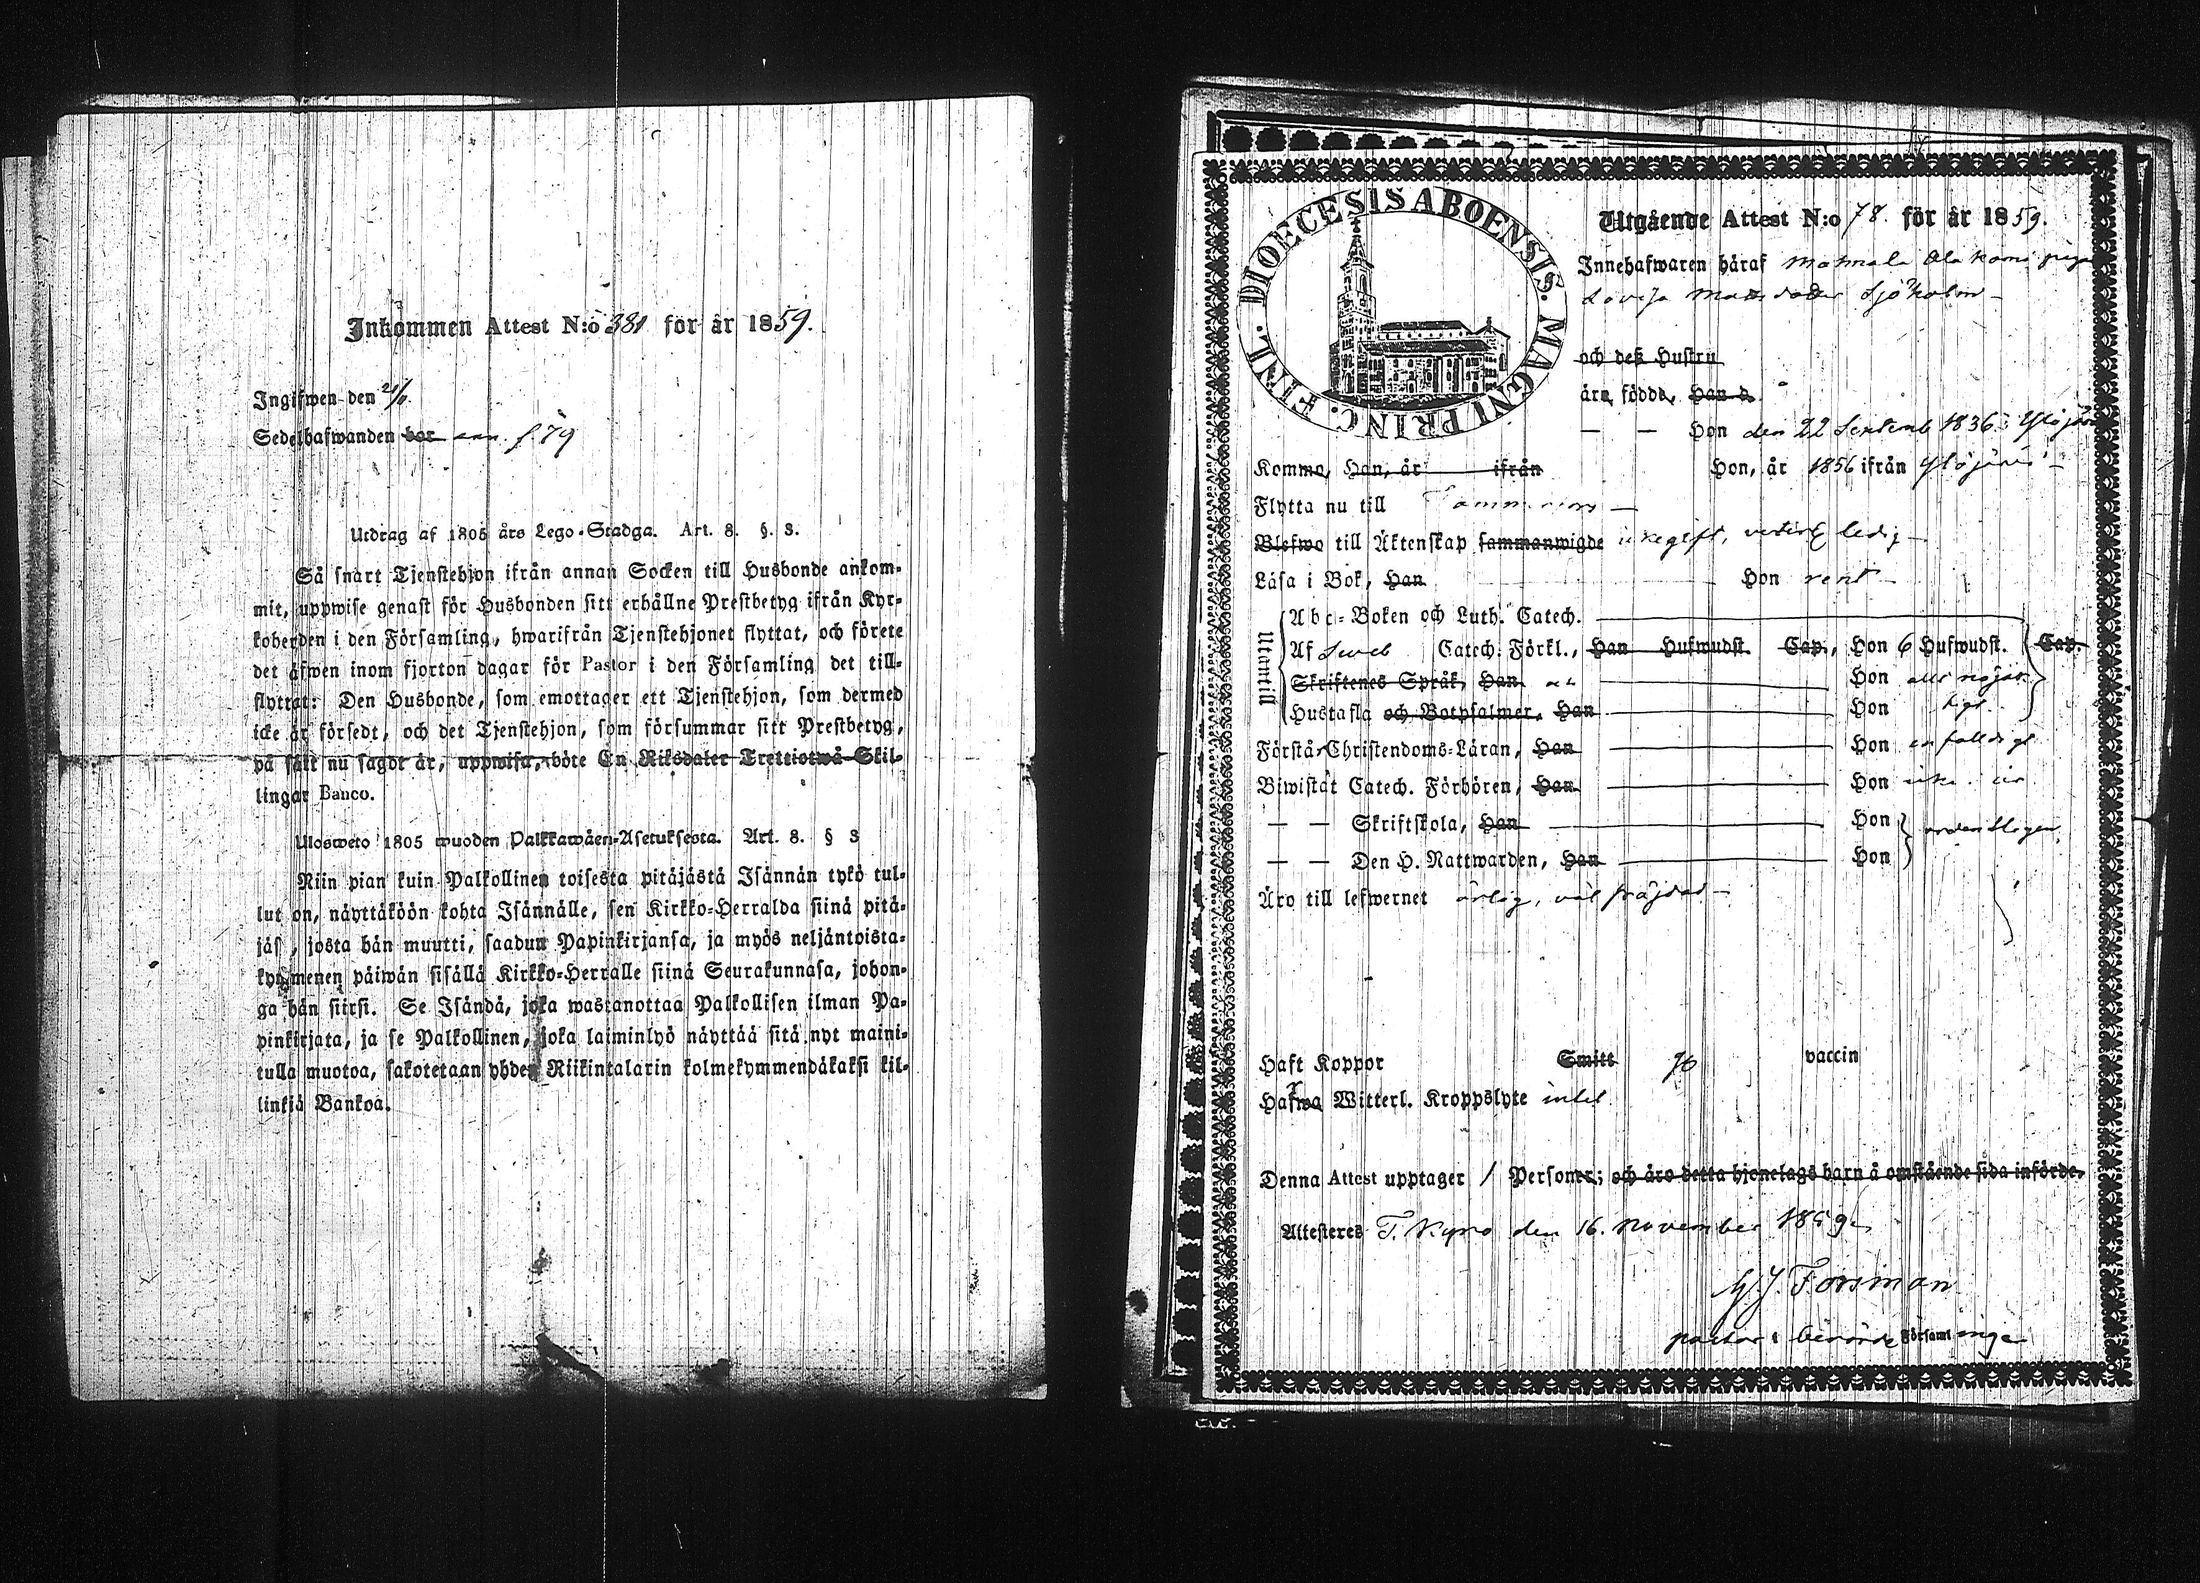 Inkommen Attest N:o 381 för år 1859.
Ingifwen den 21/11
Sedelhafwanden bor ann. f. 79
Utdrag af 1805 års Lego-Stadga. Art. 8. §. 3.
Så snart Tjenstehjon ifrån annan Socken till Husbonde ankom-
mit, uppwise genast för Husbonden sitt erhållne Prestbetyg ifrån Kyr-
koherden i den Församling, hwarifrån Tjenstehjonet flyttat, och förete
det äfwen inom fjorton dagar för Pastor i den Församling det till-
flyttat: Den Husbonde, som emottager ett Tjenstehjon, som dermed
icke är försedt, och det Tjenstehjon, som försummar sitt Prestbetyg,
på sätt nu sagdt är, uppwisa, böte En Riksdaler Trettiotwå Skil-
lingar Banco.
Ulosweto 1805 wuoden Palkkawäen-Asetuksesta. Art. 8. § 3
Niin pian kuin Palkollinen toisesta pitäjästä Isännän tykö tul-
lut on, näyttäköön kohta Isännälle, sen Kirkko-Herralda siinä pitä-
jäs, josta hän muutti, saadun Papinkirjansa, ja myös neljäntoista-
kymmenen päiwän sisällä Kirkko-Herralle siinä Seurakunnasa, johon-
ga hän siirsi. Se Isändä, joka wastanottaa Palkollisen ilman Pa-
pinkirjata, ja se Palkollinen, joka laiminlyö näyttää sitä nyt maini-
tulla muotoa, sakotetaan yhden Riikintalarin kolmekymmendäkaksi kil-
linkiä Bankoa.
DIOECESIS ABOENSIS. MAGNI PRINC. FINL.
Utgående Attest N:o 78. för år 1859.
Innehafwaren häraf Mahnala Ala Komi pigan
Lovisa Mattsdotter Sjöholm
och deß Hustru
äro födde, Han d.
— — Hon den 22 Septemb 1836 i Ylöjärvi
Komma, Han, år ifrån Hon, år 1856 ifrån Ylöjärvi
Flytta nu till Tammerfors
Blefwo till Äktenskap sammanwigde ledig
Läsa i Bok, Han Hon rent
Utantill
Abc-Boken och Luth. Catech.
Af Sveb Catech. Förkl., Han Hufwudst. Cap., Hon 6 Hufwudst. Cap.
Skriftenes Språk, Han Hon
Hustafla och Botpsalmer, Han Hon
Förstår Christendoms-Läran, Han Hon enfaldigt
Biwistat Catech. Förhören, Han Hon
— — Skriftskola, Han Hon ordentligen
— — Den H. Nattwarden, Han Hon
Äro till lefwernet ärlig, väl fräjdad
Haft Koppor Smitt vaccin
Hafwa Witterl. Kroppslyte intet
Denna Attest upptager 1 Personer; och äro detta hjonelags barn å omstående sida införde.
Attesteres T. Kyro den 16. November 1859
G. J. Forsman
pastor i Församl